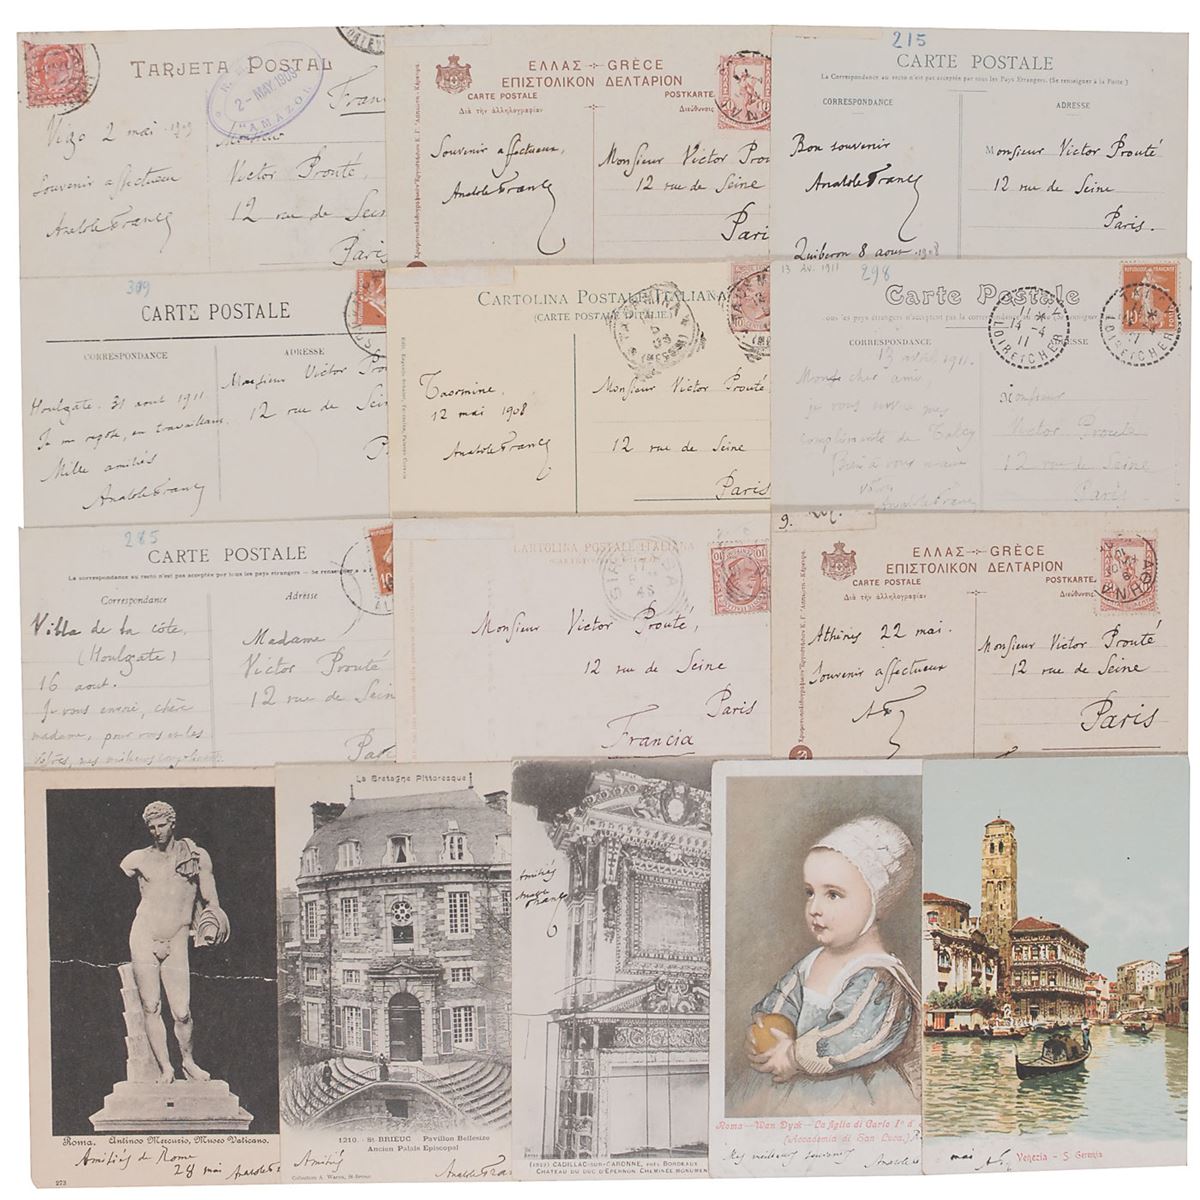 TARJETA POSTAL
2 - MAY. 1909
"AMAZON"
Vigo 2 mai 1909
Souvenir affectueux
Anatole France
Monsieur
Victor Prouté,
12 rue de Sein
Paris
ΕΛΛΑΣ - GRÈCE
ΕΠΙΣΤΟΛΙΚΟΝ ΔΕΛΤΑΡΙΟΝ
CARTE POSTALE POSTKARTE
Διὰ τὴν ἀλληλογραφίαν Διεύθυνσις
Souvenir affectueux,
Anatole France
Monsieur Victor Prou
12 rue de Seine
Pari
215
CARTE POSTALE
La Correspondance au recto n'est pas acceptée par tous les Pays Etrangers. (Se renseigner à la Poste)
CORRESPONDANCE ADRESSE
Bon souvenir
Anatole France
Quiberon 8 aout 1908
Monsieur Victor Prouté
12 rue de Seine
Paris.
309
CARTE POSTALE
CORRESPONDANCE ADRESSE
Houlgate. 31 aout 1911.
Je me repose, en travaillant.
Mille amitiés
Anatole France
Monsieur Victor Pro
12 rue de Sein
P
CARTOLINA POSTALE ITALIANA
(CARTE POSTALE D'ITALIE)
Taormine,
12 mai 1908
Anatole France
Monsieur Victor Prouté
12 rue de Seine
Paris
13 Av. 1911
298
Carte Postale
CORRESPONDANCE ADRESSE
LOIR ET CHER
14 - 4
11
REPUBLIQUE FRANÇAISE
10c
13 avril 1911.
Mon cher ami,
je vous envoie mes
compliments de Talcy
Bien à vous
Anatole France
Monsieur
Victor Prouté
12 rue de Seine
Paris
285
CARTE POSTALE
La correspondance au recto n'est pas acceptée par tous les pays étrangers - Se renseigner à
Correspondance Adresse
Villa de la côte,
(Houlgate)
16 aout.
Je vous envoie, chère
madame, pour vous et les
vôtres, mes meilleurs compliments
Madame
Victor Prouté
12 rue de Sein
Par
CARTOLINA POSTALE ITALIANA
Monsieur Victor Prouté,
12 rue de Seine
Paris
Francia
ΕΛΛΑΣ - GRÈCE
ΕΠΙΣΤΟΛΙΚΟΝ ΔΕΛΤΑΡΙΟΝ
CARTE POSTALE POSTKARTE
Διὰ τὴν ἀλληλογραφίαν Διεύθυνσις
Athènes 22 mai.
Souvenir affectueux
Monsieur Victor Prouté
12 rue de Seine
Paris
Roma. Antinoo Mercurio, Museo Vaticano.
Amitiés de Rome
28 mai Anatole F
273
La Bretagne Pittoresque
1210. St-BRIEUC Pavillon Bellesize
Ancien Palais Episcopal
Amitiés Anatole Fra
Collection A. Waron, St-Brieuc
Amitiés
Anatole
France
CADILLAC-SUR-GARONNE, PRÈS BORDEAUX
CHATEAU DU DUC D'EPERNON CHEMINÉE MONUMEN
Roma - Wan Dyck - La figlia di Carlo I° d
(Accademia di San Luca.)
Mes meilleurs souvenirs
Anatole
mai
Venezia - S. Geremia